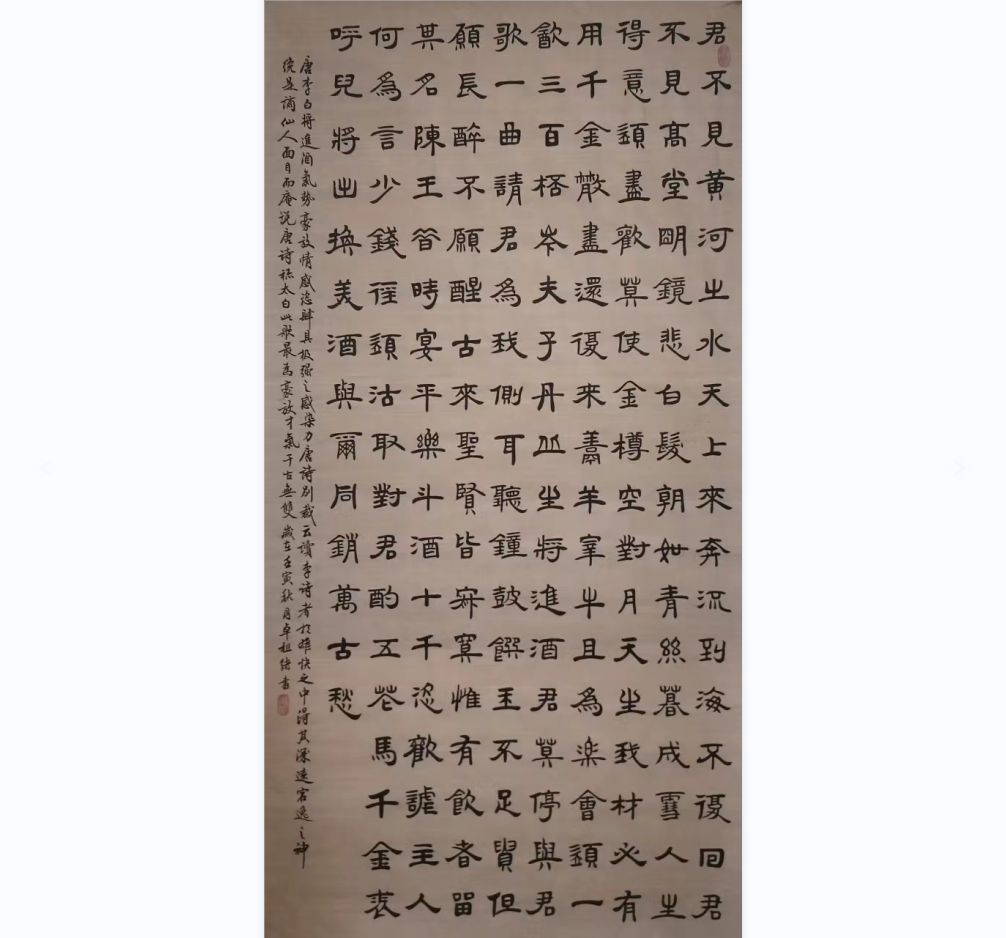 君不見黄河之水天上來奔流到海不復回君
不見高堂明鏡悲白髮朝如青絲暮成雪人生
得意須盡歡莫使金樽空對月天生我材必有
用千金散盡還復來烹羊宰牛且為樂會須一
飲三百杯岑夫子丹丘生將進酒君莫停與君
歌一曲請君為我側耳聽鐘鼓饌玉不足貴但
願長醉不願醒古來聖賢皆寂寞惟有飲者留
其名陳王昔時宴平樂斗酒十千恣歡謔主人
何為言少錢徑須沽取對君酌五花馬千金裘
呼兒將出換美酒與爾同銷萬古愁
唐李白將進酒氣勢豪放情感恣肆具極強之感染力唐詩別裁云讀李詩者於雄快之中得其深遠宕逸之神
纔是謫仙人面目而庵說唐詩稱太白此歌最為豪放才氣千古無雙歲在壬寅秋月卓祖書